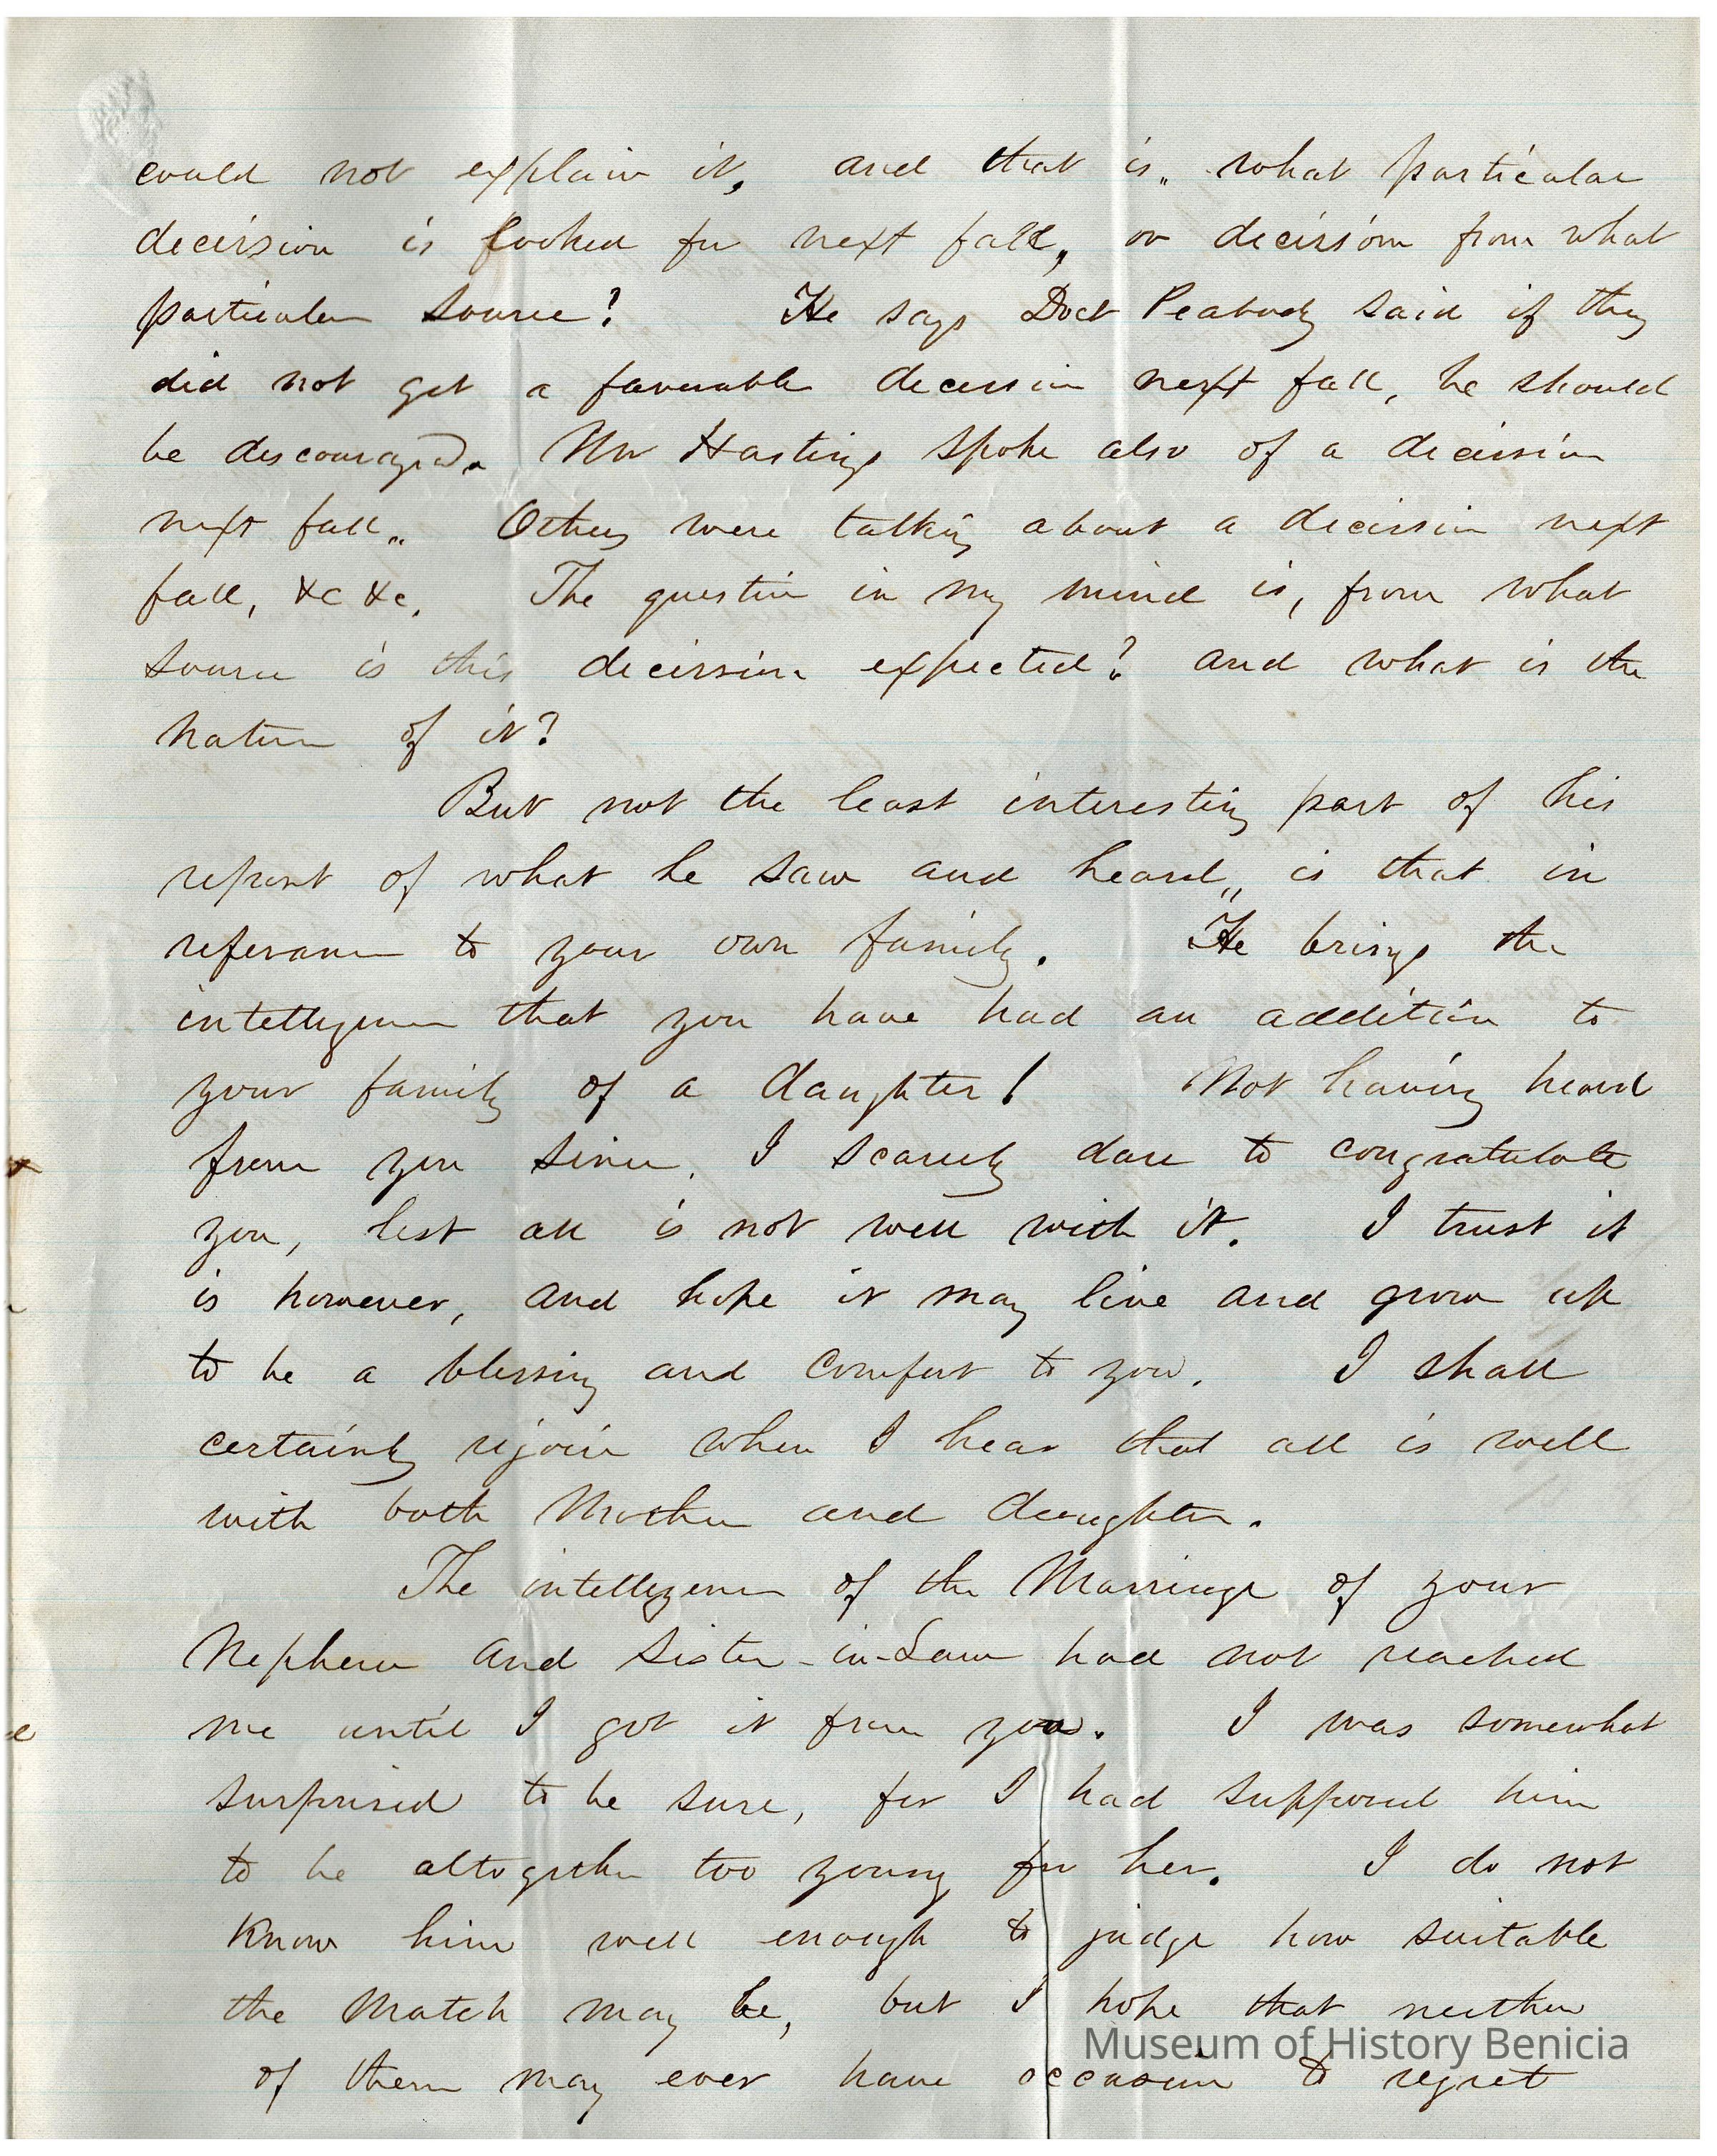 could not explain it, and that is, what particular
decision is looked for next fall, or decision from what
particular source? He says Doct Peabody said if they
did not get a favorable decission next fall, he should
be discouraged. Mr Hastings spoke also of a decission
next fall. Others were talking about a decission next
fall, &c &c. The question in my mind is, from what
source is this decission expected? and what is the
nature of it?
But not the least interesting part of his
report of what he saw and heard, is that in
referance to your own family. He brings the
intelligence that you have had an addition to
your family of a daughter! Not having heard
from you since, I scarcely dare to congratulate
you, lest all is not well with it. I trust it
is however, and hope it may live and grow up
to be a blessing and comfort to you. I shall
certainly rejoice when I hear that all is well
with both Mother and daughter.
The intelligence of the Marriage of your
Nephew and Sister-in-Law had not reached
me until I got it from you. I was somewhat
surprised to be sure, for I had supposed him
to be altogether too young for her. I do not
know him well enough to judge how suitable
the Match may be, but I hope that neither
Museum of History Benicia
of them may ever have occasion to regret